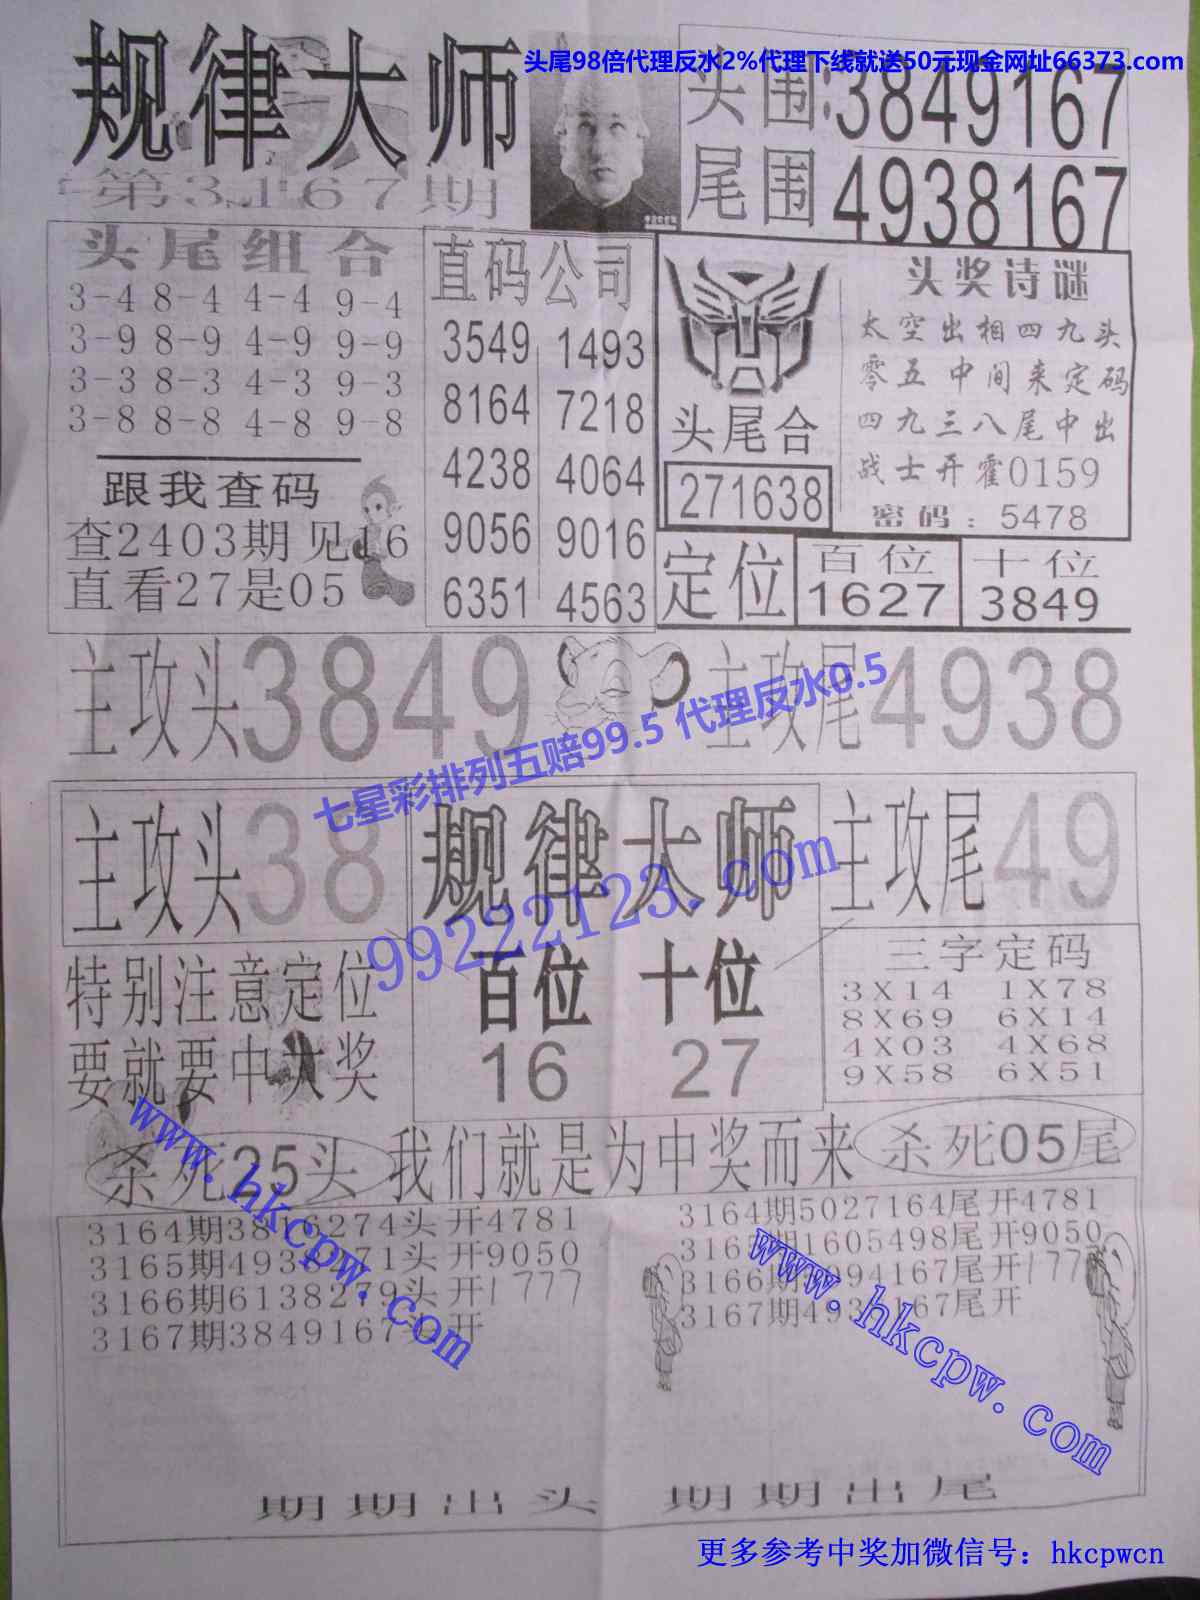 头尾98倍代理反水2%代理下线就送50元现金网址66373.com
规律大师
第3167期
头围:3849167
尾围4938167
头尾组合
3-4 8-4 4-4 9-4
3-9 8-9 4-9 9-9
3-3 8-3 4-3 9-3
3-8 8-8 4-8 9-8
跟我查码
查2403期见16
直看27是05
直码公司
3549 1493
8164 7218
4238 4064
9056 9016
6351 4563
头尾合
271638
头奖诗谜
太空出相四九头
零五中间来定码
四九三八尾中出
战士开霍0159
密码:5478
定位
百位
1627
十位
3849
主攻头3849
主攻尾4938
七星彩排列五赔99.5 代理反水0.5
主攻头38
规律大师
主攻尾49
99222123.com
特别注意定位
要就要中大奖
百位 十位
16 27
三字定码
3X14 1X78
8X69 6X14
4X03 4X68
9X58 6X51
杀死25头
我们就是为中奖而来
杀死05尾
www.hkcpw.com
3164期3816274头开4781
3165期4938271头开9050
3166期6138279头开1777
3167期3849167头开
3164期5027164尾开4781
3165期1605498尾开9050
3166期 094167尾开1777
3167期4938167尾开
www.hkcpw.com
期期出头
期期出尾
更多参考中奖加微信号：hkcpwcn